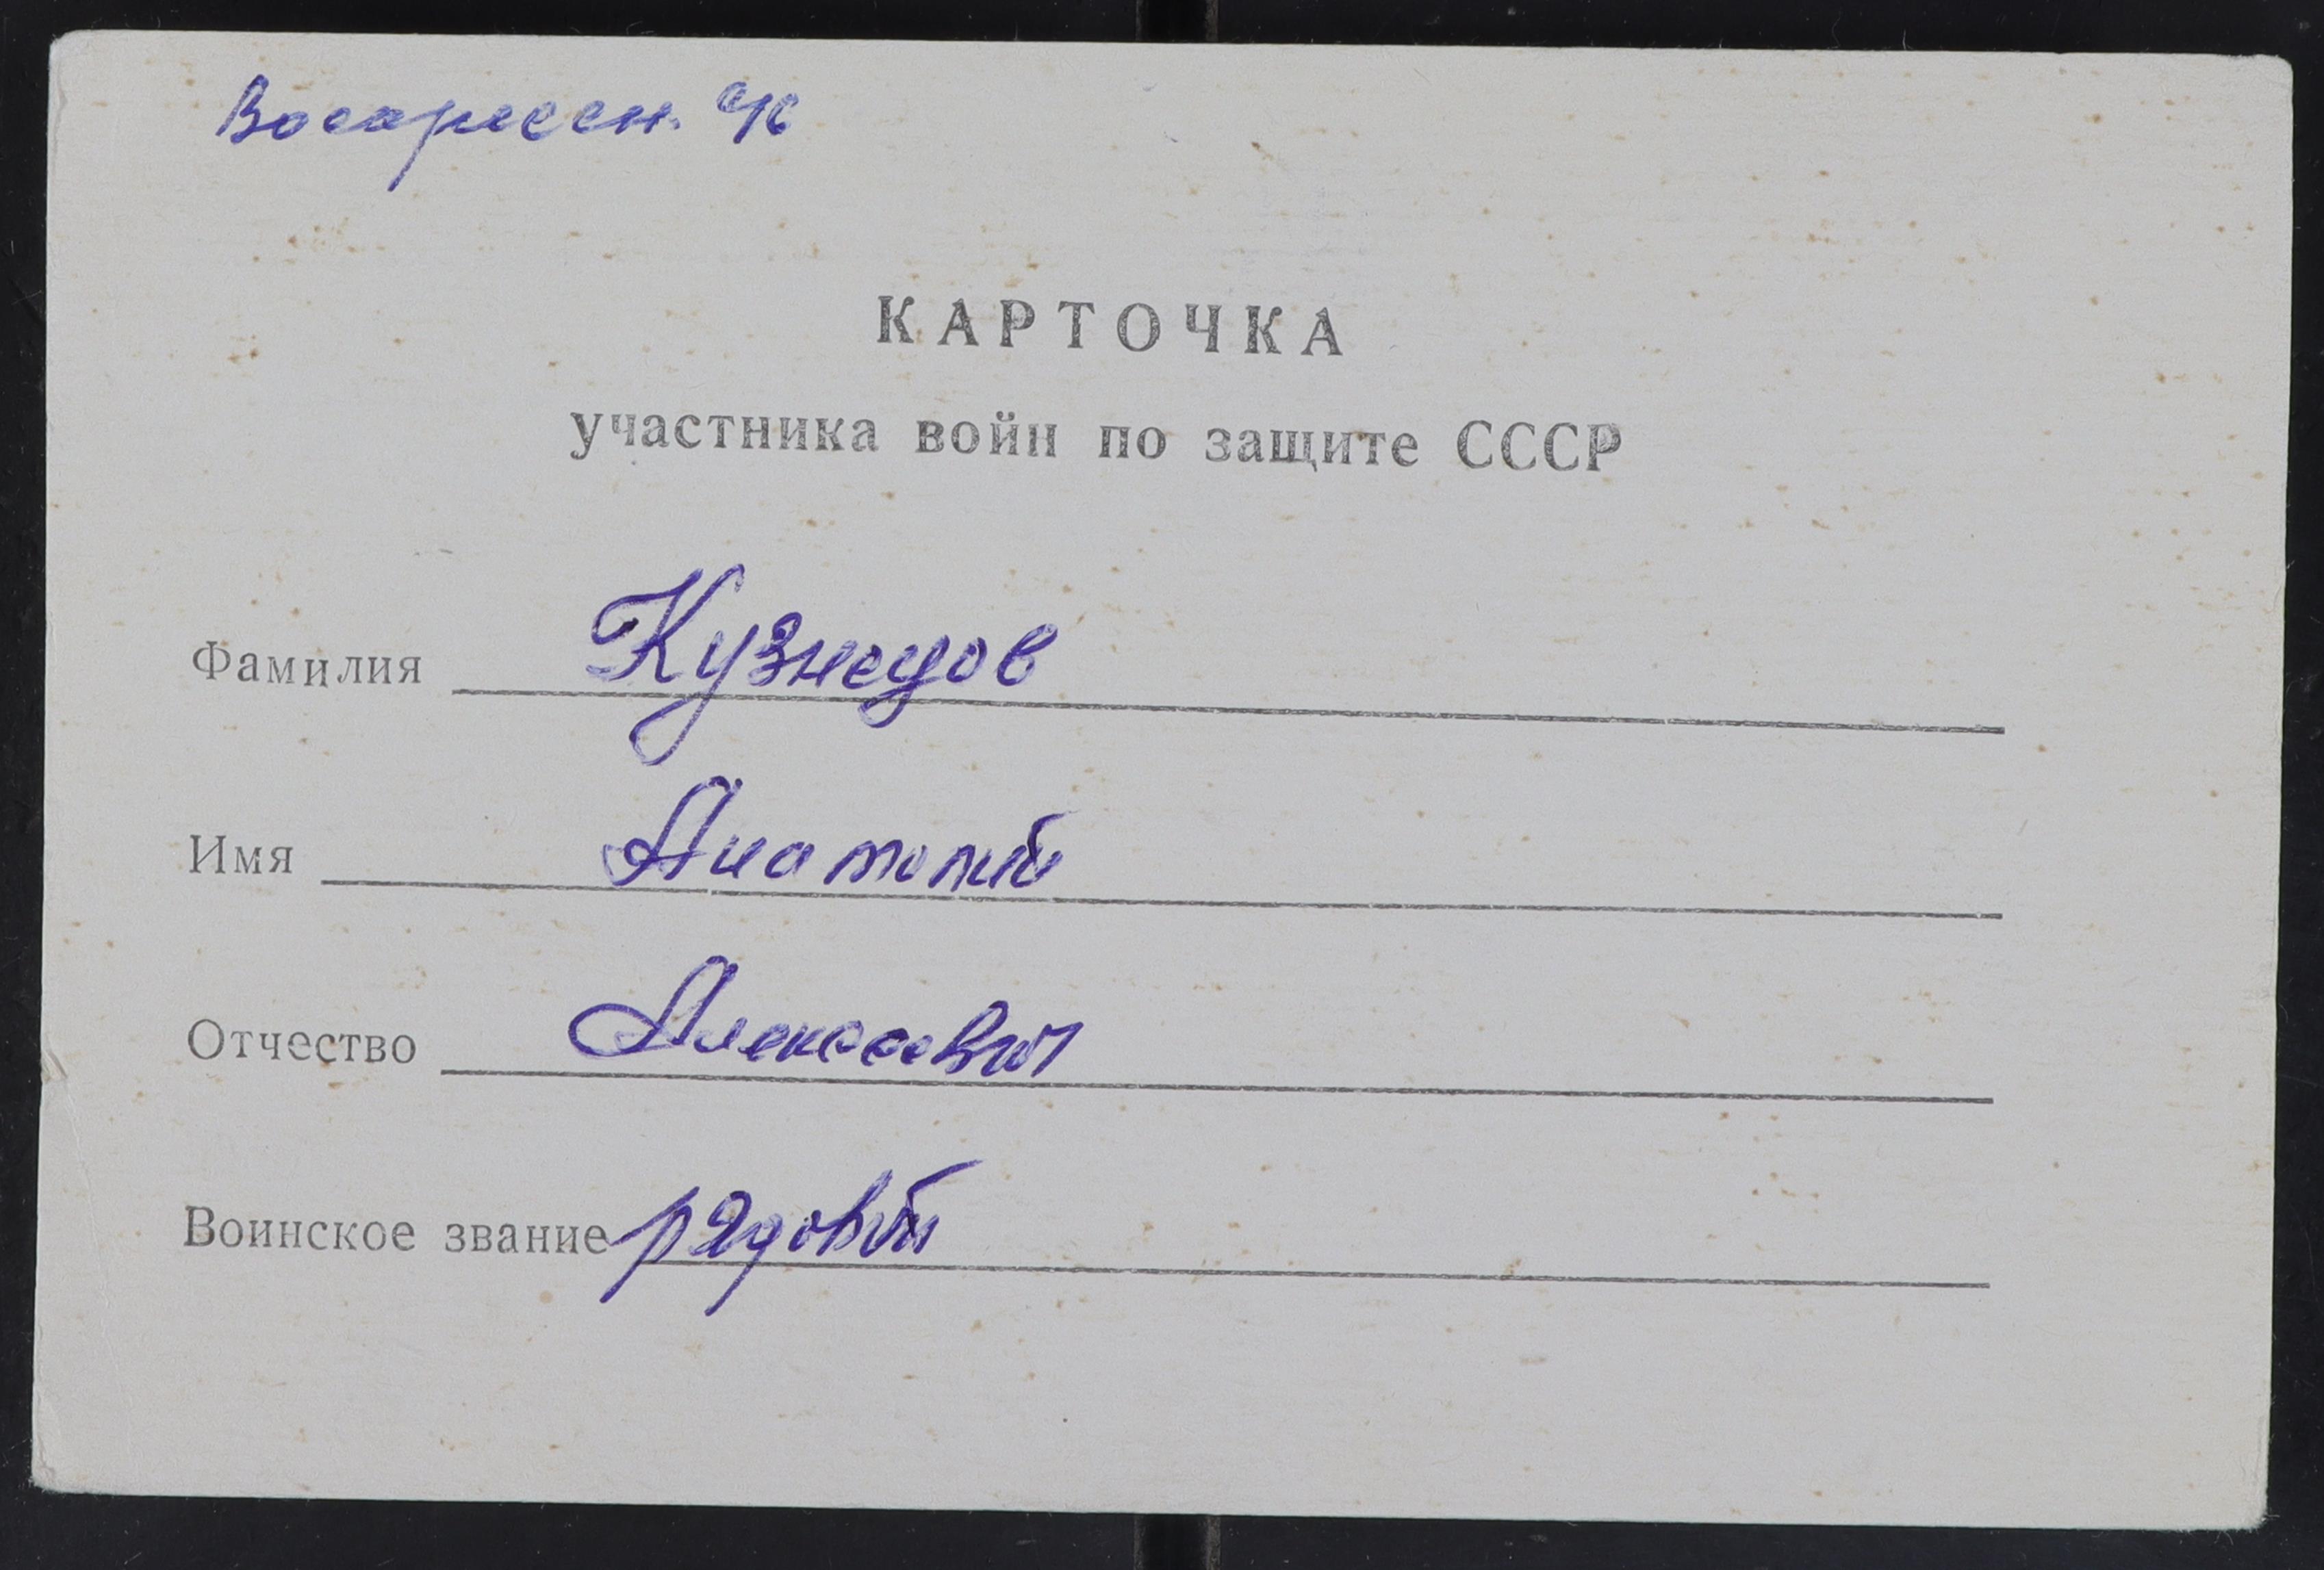 Воскресен. с/с
КАРТОЧКА
участника войн по защите СССР
Фамилия Кузнецов
Имя Анатолий
Отчество Алексеевич
Воинское звание рядовой